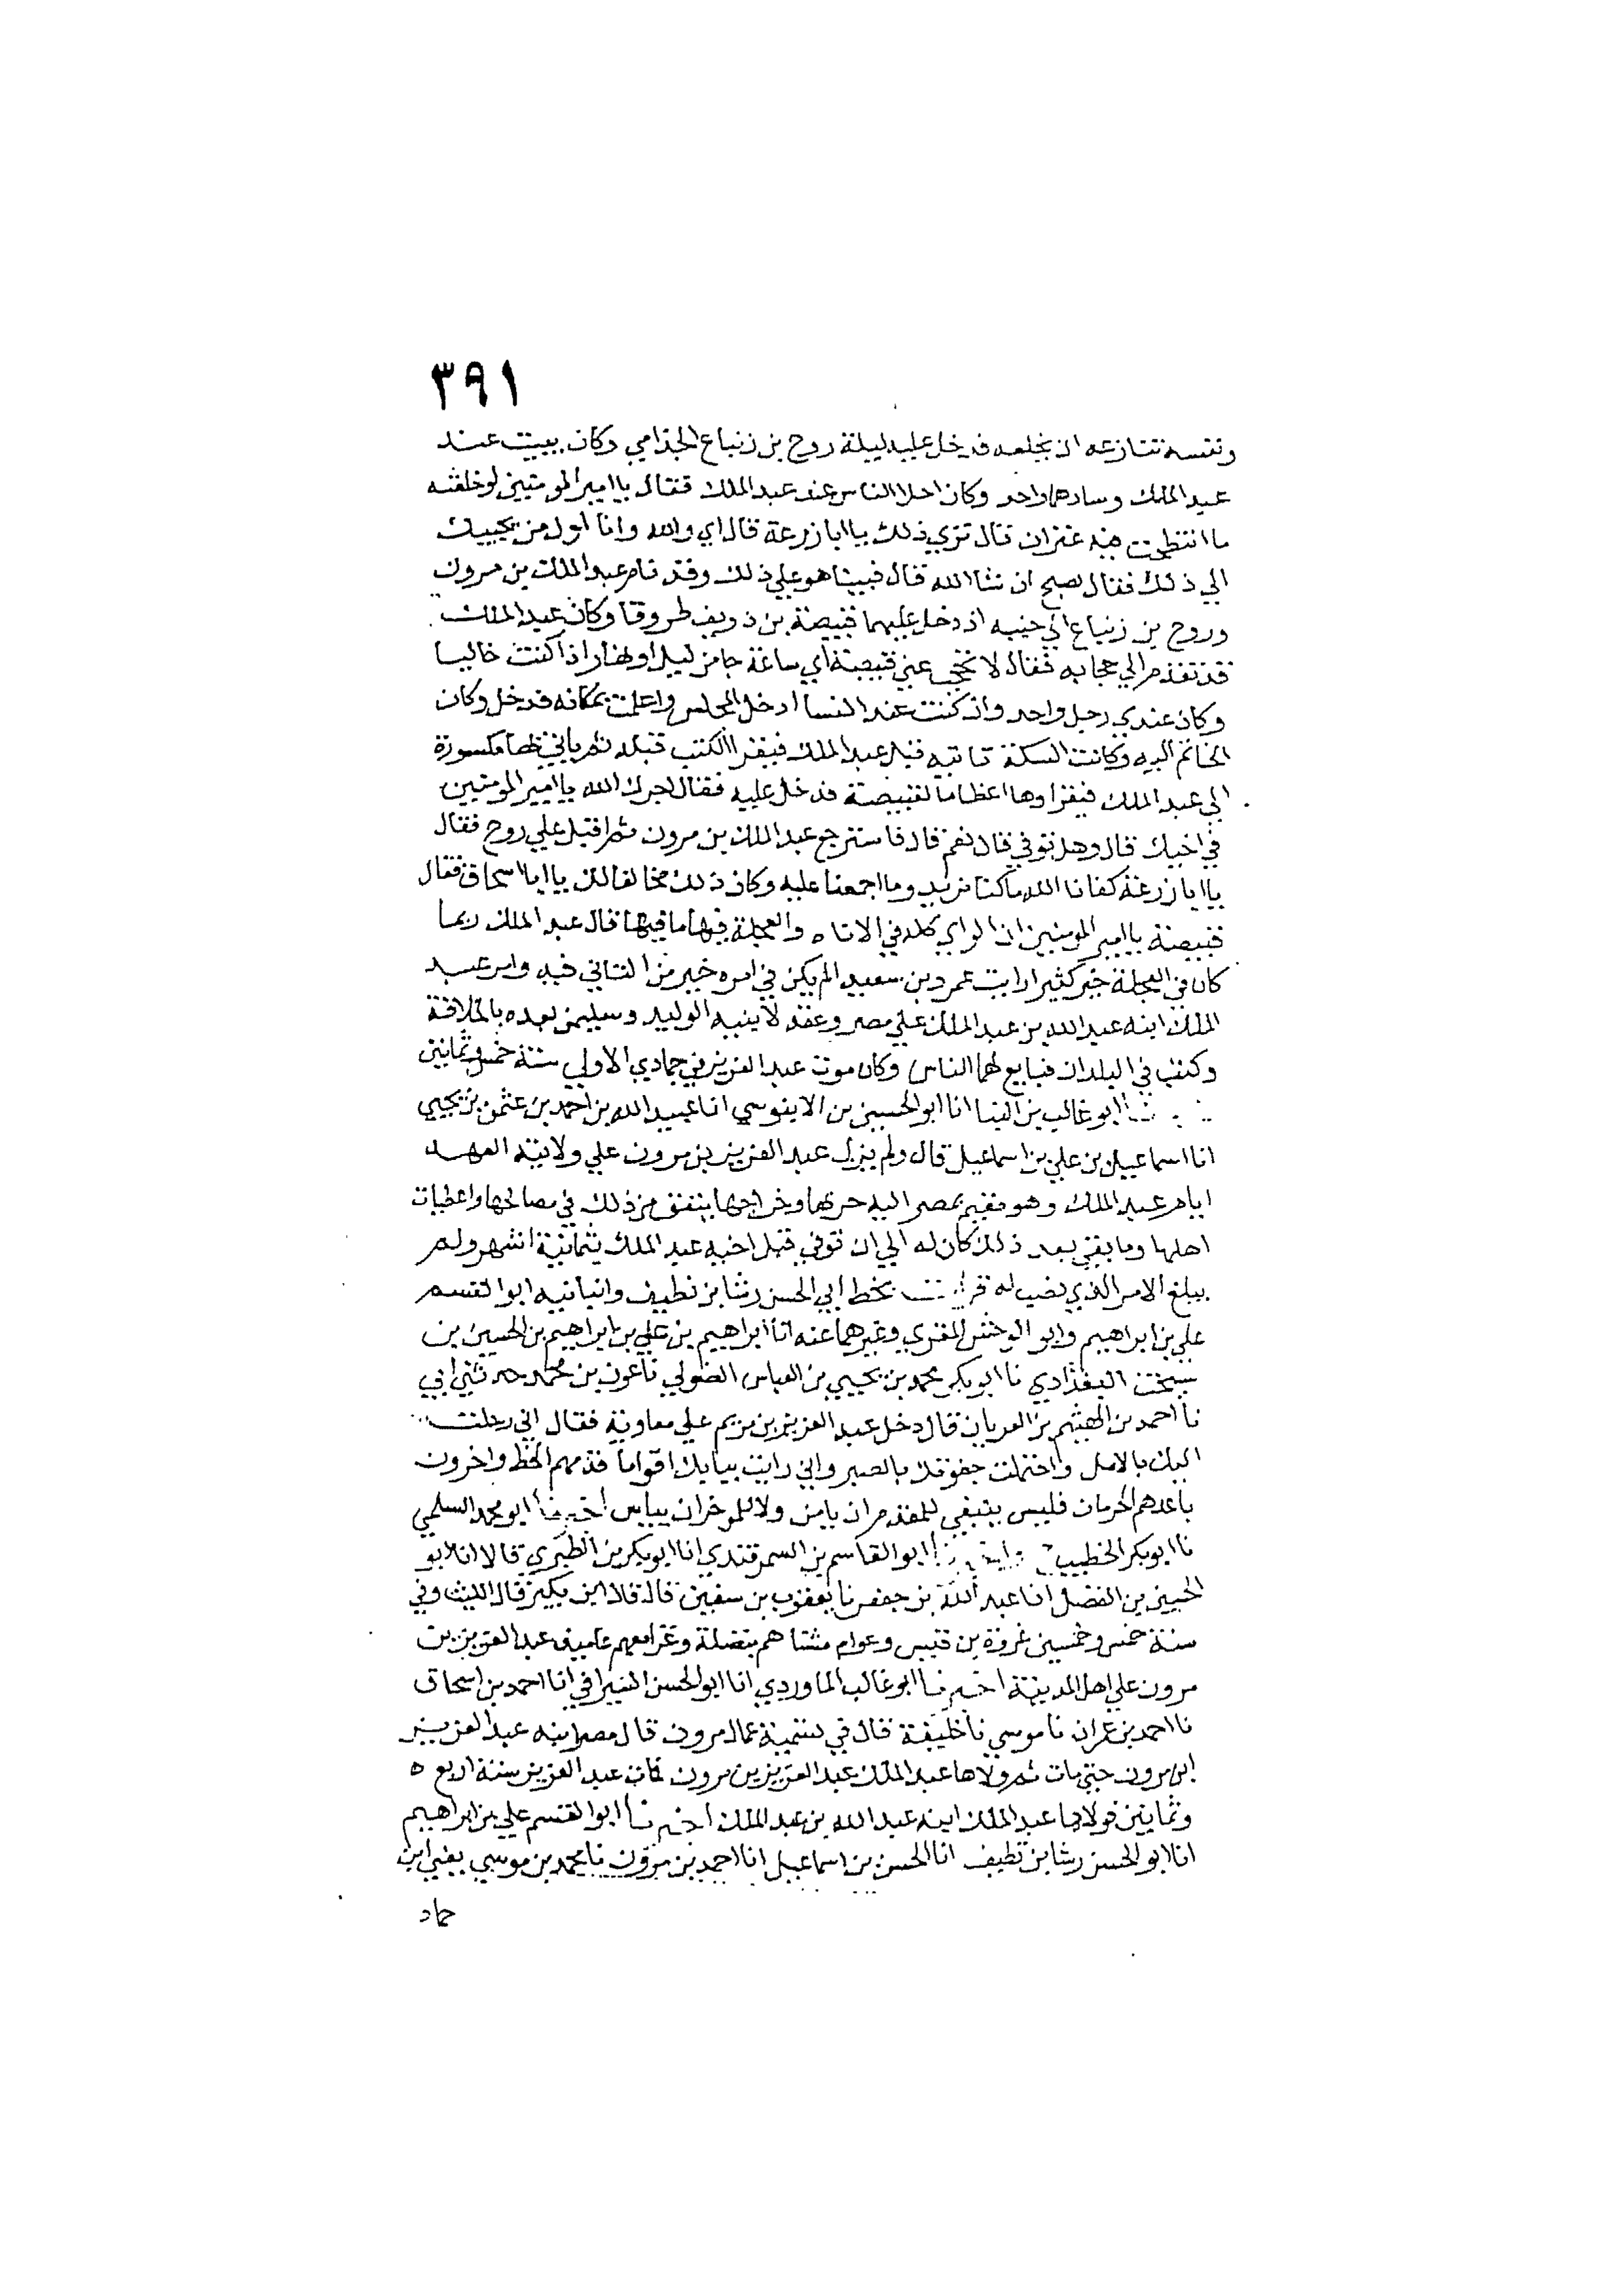 ٣٩١
ونفسه تنازعه ان يخلعه فدخل عليه ليلة روح بن زنباع الجذامي وكان يبيت عند
عبد الملك وسادهما واحد وكان احلا الناس عند عبد الملك فقال يا امير المومنين لو خلعته
ما انتطحت فيه عنزان قال تري ذلك يا ابا زرعة قال اي والله وانا اول من يجيبك
الي ذلك فقال نصبح ان شا الله قال فبينا هو علي ذلك وقد نام عبد الملك بن مرون
وروح بن زنباع الي جنبه اذ دخل عليهما قبيصة بن ذويب طروقا وكان عبد الملك
قد تقدم الي حجابه فقال لا تحجب عني قبيصة اي ساعة جا من ليل او نهار اذا كنت خاليا
وكان عندي رجل واحد وان كنت عند النسا ادخل المجلس واعلمت بمكانه فدخل وكان
الخاتم اليه وكانت السكة تاتيه قبل عبد الملك فيقرا الكتب قبله ثم ياتي بها مكسورة
الي عبد الملك فيقراوها اعظاما لقبيصة فدخل عليه فقال اجرك الله يا امير المومنين
في اخيك قال وهل توفي قال نعم قال فاسترجع عبد الملك بن مرون ثم اقبل علي روح فقال
يا ابا زرعة كفانا الله ما كنا نريد وما اجمعنا عليه وكان ذلك مخالفا لك يا ابا اسحاق فقال
قبيصة يا امير المومنين ان الراي كله في الاناه والعجلة فيها ما فيها قال عبد الملك ربما
كان في العجلة خير كثير ارايت عمرو بن سعيد الم يكن في امره خير من التاني فيه وامر عبد
الملك ابنه عبد الله بن عبد الملك علي مصر وعقد لابنيه الوليد وسليمن بعده بالخلافة
وكتب في البلدان فبايع لهما الناس وكان موت عبد العزيز في جمادي الاولي سنة خمس وثمانين
ابو غالب بن البنا انا ابو الحسين بن الابنوسي انا عبيد الله بن احمد بن عثمن بن يحيي
انا اسماعيل بن علي بن اسماعيل قال ولم يزل عبد العزيز بن مرون علي ولايته العهد
ايام عبد الملك وهو مقيم بمصر اليه حربها وخراجها ينفق من ذلك في مصالحها واعطيات
اهلها وما بقي بعد ذلك كان له الي ان توفي قبل اخيه عبد الملك بثمانية اشهر ولم
يبلغ الامر الذي نصب له قرات بخط ابي الحسن رشا بن نظيف وانبانيه ابو القسم
علي بن ابراهيم وابو الوحش المقري وغيرهما عنه انا ابراهيم بن علي بن ابراهيم بن الحسين بن
سيبخت البغدادي نا ابو بكر محمد بن يحيي بن العباس الصولي نا عون بن محمد حدثني ابي
نا احمد بن الهيثم بن العريان قال دخل عبد العزيز بن مريم علي معاوية فقال اني رحلت
اليك بالامل واحتملت جفوتك بالصبر واني رايت ببابك اقواما قدمهم الحظ واخرون
باعدهم الحرمان فليس ينبغي للمقدم ان يامن ولا للموخر ان ييايس اخبرنا ابو محمد السلمي
نا ابو بكر الخطيب ابو القاسم بن السمرقندي انا ابو بكر بن الطبري قالا انا ابو
الحسين بن الفضل انا عبد الله بن جعفر نا يعقوب بن سفين قال قال ابن بكير قال الليث وفي
سنة خمس وخمسين غزوة بن قيس وعوام مشتاهم بتضلة وغزا معهم عاميذ عبد العزيز بن
مرون علي اهل المدينة اخبرنا ابو غالب الماوردي انا ابو الحسن السيرافي انا احمد بن اسحاق
نا احمد بن عمران نا موسي نا خليفة قال في تسمية عمال مرون قال مصر ابنه عبد العزيز
ابن مرون حتي مات ثم ولاها عبد الملك عبد العزيز بن مرون فمات عبد العزيز سنة اربع
وثمانين فولاها عبد الملك ابنه عبد الله بن عبد الملك اخبرنا ابو القسم علي بن ابراهيم
انا ابو الحسن رشا بن نظيف انا الحسن بن اسماعيل انا احمد بن مرون نا محمد بن موسي يعني ابن
حماد